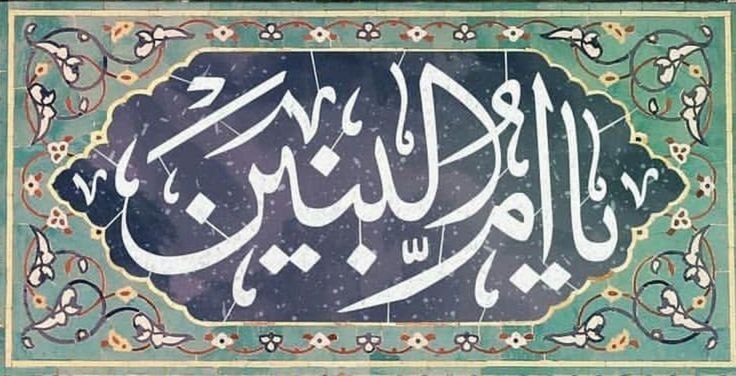 يا ام البنين